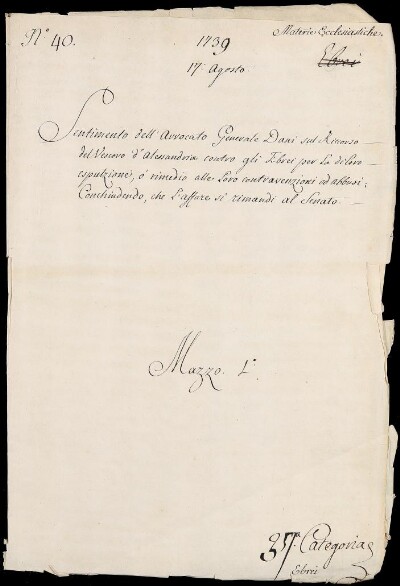 N.º 40.
1739
Materie Ecclesiastiche
Ebrei
17. Agosto.
Sentimento dell'Avvocato Generale Dani sul Ricorso
del Vescovo d'Alessandria contro gli Ebrei per la di loro
espulzione, o' rimedio alle loro contravenzioni ed abbusi:
Conchiudendo, che l'affare si rimandi al Senato.
Mazzo. 1.º
37.ª Categoria
Ebrei